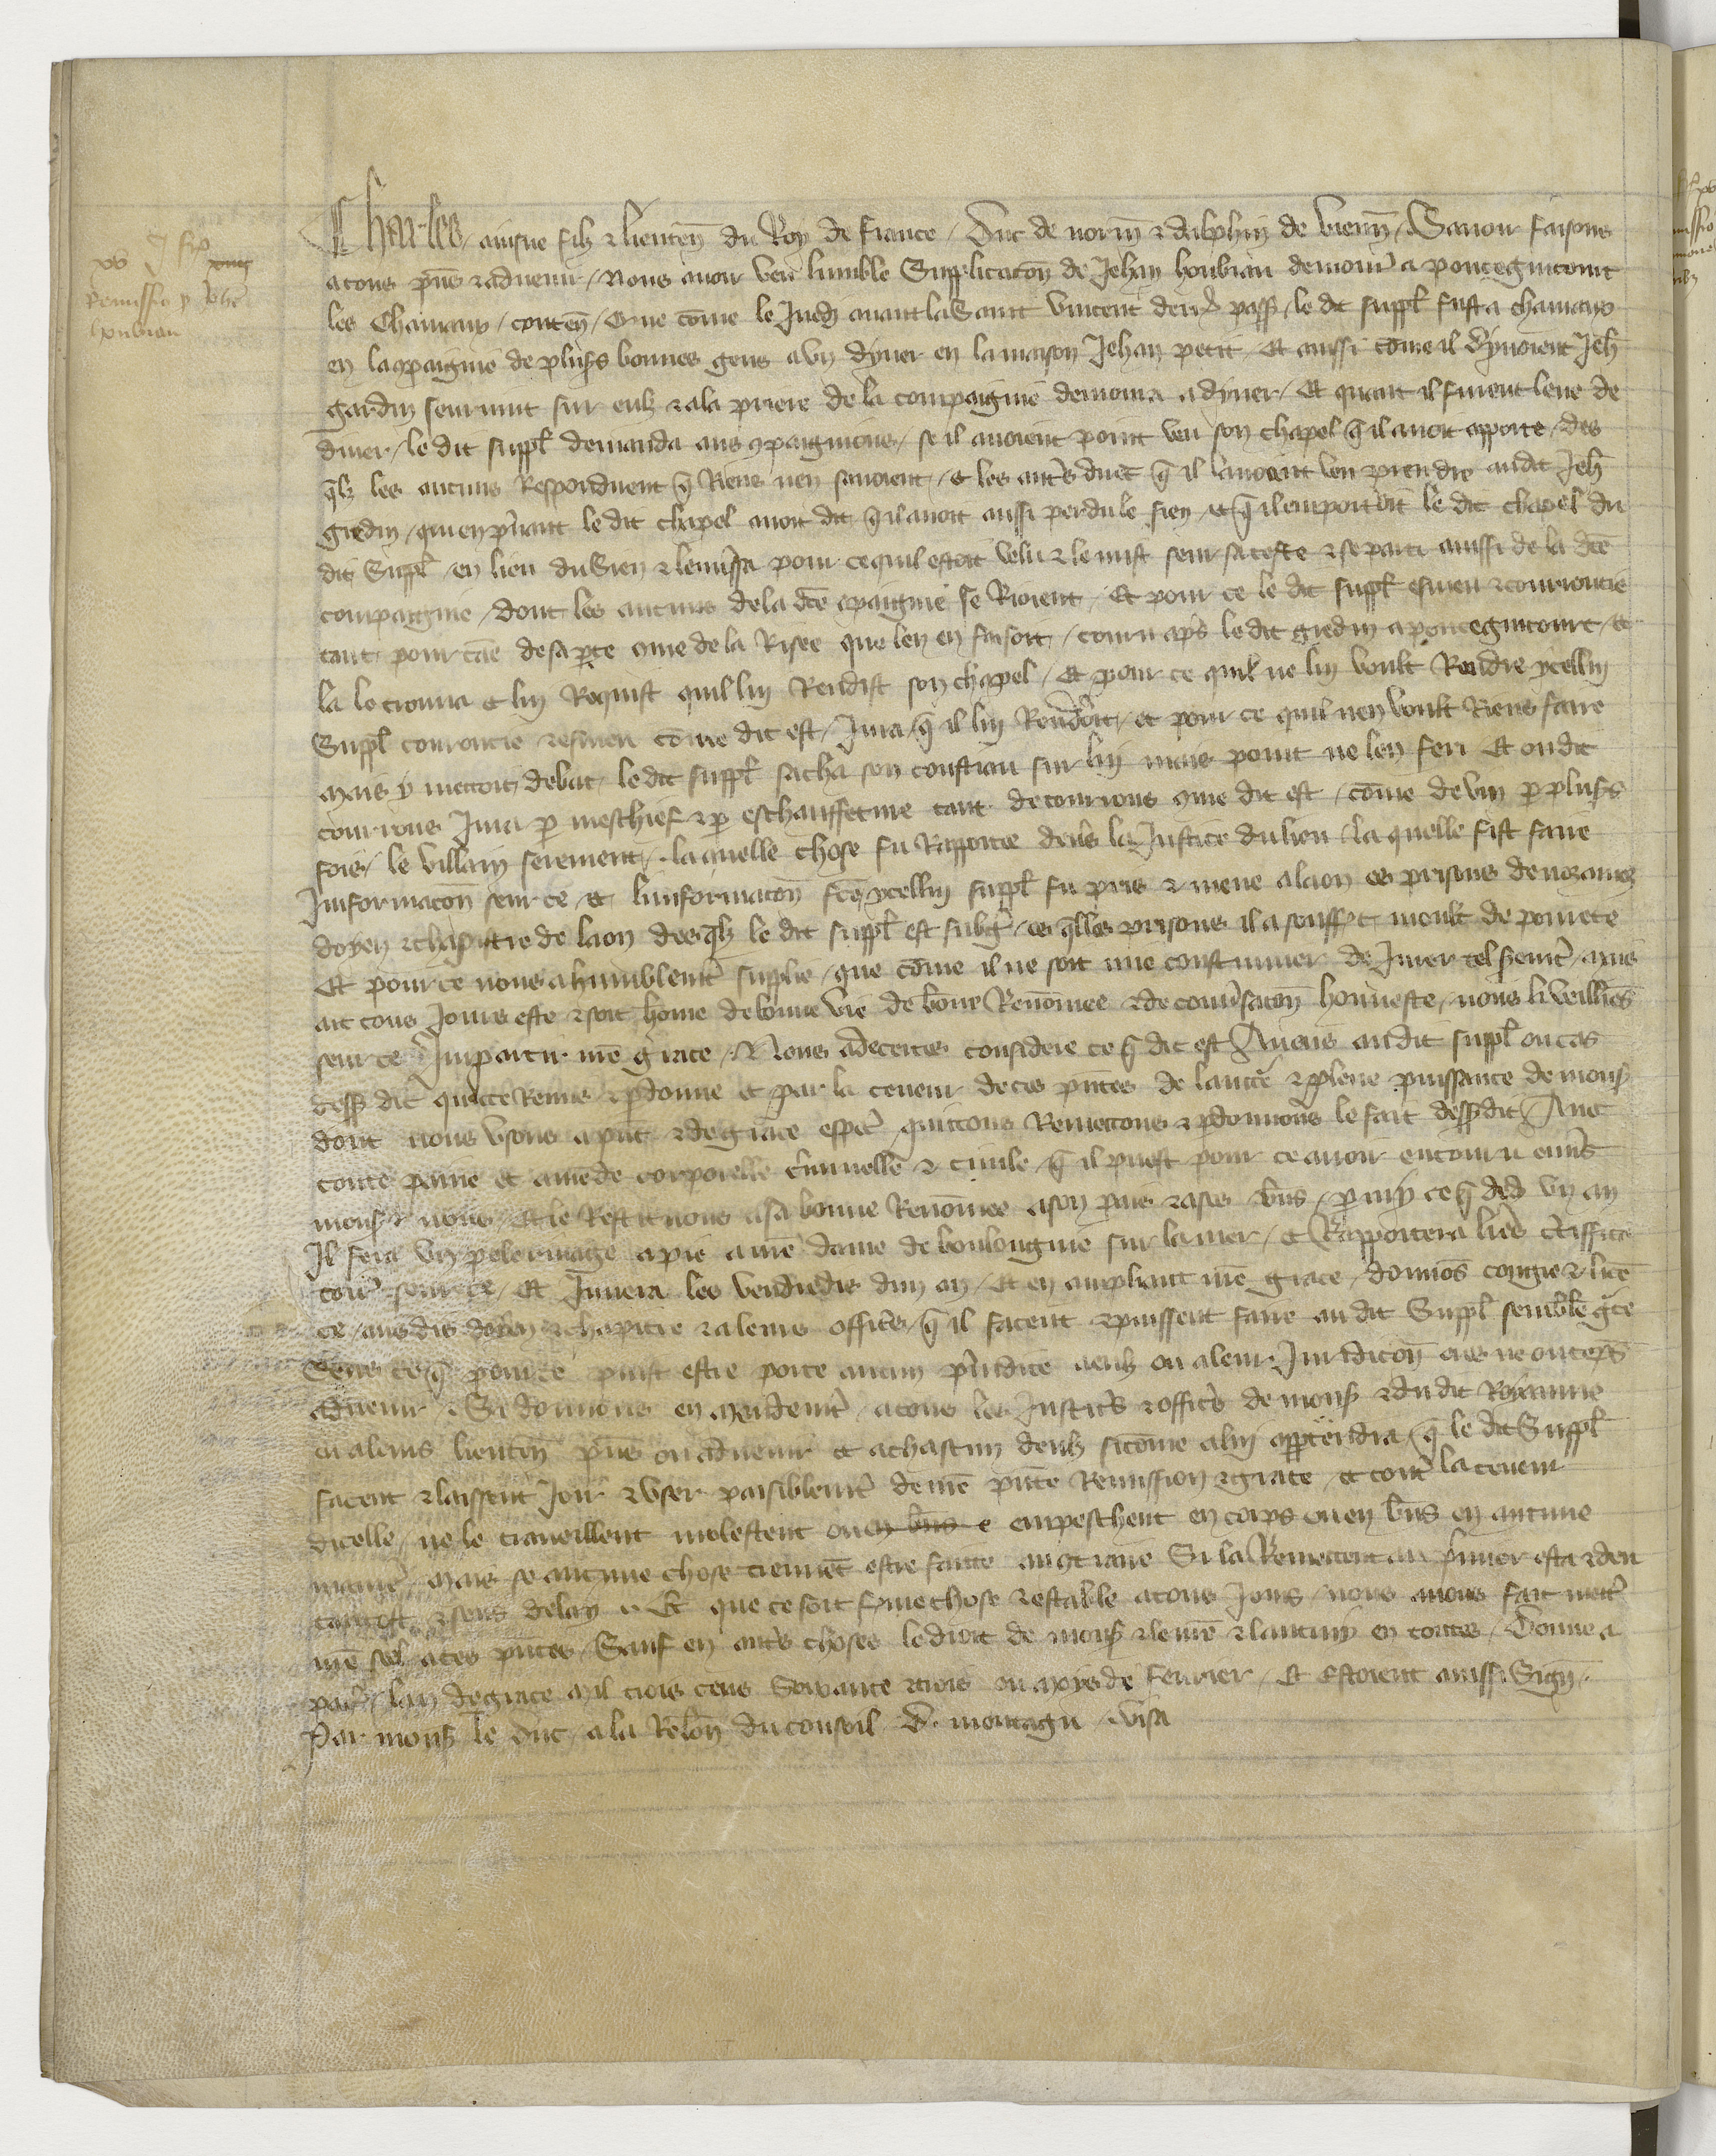 Charles ainsne filz & lieuten̄ du Roy de france / Duc de norm̄ & dalphin de vienn̄ / Sauoir faisons
a tous p̄ns & aduenir / Nous auoir veu lumble Supplicacōn de Jehan houbiau demour̄ a poncegnicourt
les Chaman / conten̄ / Que cōme le Jeudi auant la Saint vincent derr̄ pass̄ / le dit suppl̄ fust a chamano
en la ꝯpaignie de plus̄s bonnes gens a vn dyner en la maison Jehan petit / Et aussi cōme il dynoient Jeh̄
gardin seuruint sur eulz & a la priere de la compaignie demoura a dyner / Et quant il furent leue de
diner / le dit suppl̄ demanda aus ꝯpaignions / se il auoient point veu son chapel q̄ il auoit apporte / des
q̄lz les aucuns Respondirent q̄ Riens nen sauoient / et les autr̄s dirēt q̄ il lauoient veu prendre audit Jeh̄
gredin / qui en pr̄nant le dit chapel auoit dit q̄ il auoit aussi perdu le sien / et q̄ il emportoit le dit chapel du
dit Suppl̄ / en lieu du Sien & lenuersa pour ce quil estoit velu & le mist seur sa teste & se parti aussi de la dc̄e
compaignie / dont les aucuns de la dc̄e ꝯpaignie se Rioient / Et pour ce le dit suppl̄ esmeu & courroucie
tant / pour cāe de sa perte ꝯme de la Risee que len en faisoit / couru ap̄s le dit gredin a poncegnicourt / et
la le trouua et luy Requist quil luy Rendist son chapel / Et pour ce quil ne luy voult Rendre ycelluy
Suppl̄ courroucie & esmeu cōme dit est / Jura q̄ il luy Renderoit / et pour ce quil nen voult Riens faire
mais y mettoit debat / le dit suppl̄ sacha son coustiau sur luy mais point ne len feri Et ou dit
courrous Jura p̲ meschief & p̲ eschauffeture tant de courrous ꝯme dit est / cōme de vin p̲ plus̄s
fois / le villain serement / laquelle chose fu Rapportee deuers la Justice du lieu / la quelle fist faire
Informacōn seur ce / et linformacōn fc̄e ycelluy suppl̄ fu pris & mene a laon es prisons de noz amez
doyen & chapitre de laon des q̄lz le dit suppl̄ est subget / es q̄lles prisons il a souffert moult de pourete
Et pour ce nous a humblemēt supplie / que cōme il ne soit mie coustumier de Jurer tel seremt̄ / mais
ait tous Jours este & soit hōme de bonne vie de bōne Renōmee & de conu̓sacōn honneste / nous li veillies
seur ce Impartir nr̄e grace / Nous adecertes considere ce q̄ dit est Auons au dit suppl̄ ou cas
dess̄ dit quitte Remis & p̲donne et par la teneur de ces pn̄tes de lauctē & plene puissance de mons̄
dont nous vsons a pn̄t & de grace especial quittons Remettons & p̲donnons le fait dess̄dit Auec
toute paine et amēde corporelle cr̄iminelle & ciuile / q̄ il puest pour ce auoir encouru enuers
mons̄ & nous / Et le Restituons a sa bonne Renōmee a son pais & a ses biens / p̲ my ce q̄ deds vn an
Il fera vn pelerinage a pie a nr̄e dame de bouloingne sur la mer / et Rapportera lr̄es cr̄tiffica
toires seur ce / Et Junera les vendredis dun an / Et en ampliant nr̄e grace / donnōs congie & licē
ce / aus dis doyen & chapitre & a leurs officrs / q̄ il facent & puissent faire au dit Suppl̄ semblē grac̄e
Sens ce q̄ pour ce puist estre porte aucun pr̄iudice a eulz ou a leur Juridicōn ores ne ou temps
aduenir / Si donnons en mandemt̄ / a tous les Justicrs & officrs de mons̄ & du dit Royaume
ou a leurs lieuten̄ pn̄s ou aduenir et a chascun deulz sicōme a luy appartendra / q̄ le dit Suppl̄
facent & laissent Joir & vser paisiblemt̄ de nr̄e pn̄te Remission & grace / et contr̄ la teneur
dicelle / ne le traueillent molestent ou en biens e empeschent en corps ou en biens en aucune
maniere / mais se aucune chose treuuēt estre faitte au ꝯtraire Si la Remettent au pr̄mier estat & deu
tantost & sens delay / Et que ce soit ferme chose & estable a tous Jours / nous auons fait mettr̄
nr̄e seel a ces pn̄tes / Sauf en autr̄s choses le droit de mons̄ & le nr̄e & lautruy en toutes / Donne a
paris / lan de grace mil trois cens Soixante & trois ou moys de feurier / Et Estoient aussi Sign̄
Par mons̄ le duc / a la Relōn du conseil D. montagu / visa
xv
Remissio p̲ Joh̄e
houbiau